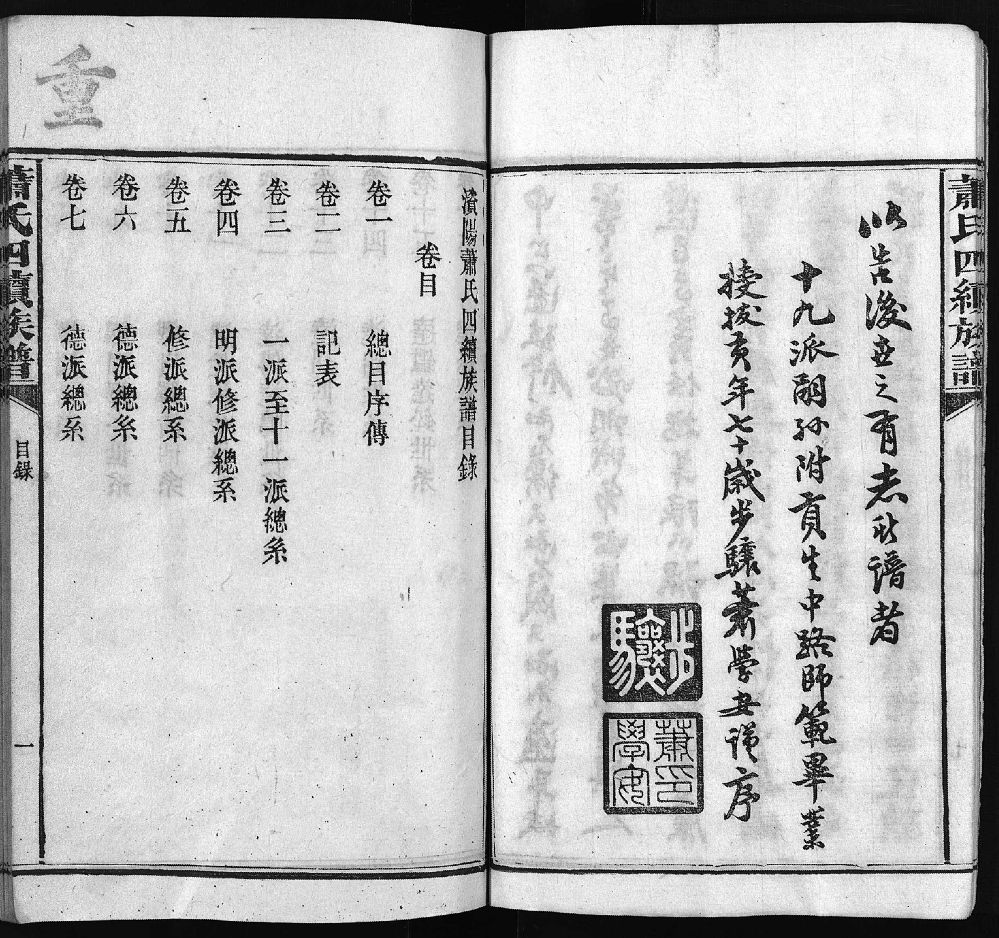 蕭氏四續族譜
以告後世之有志於譜者
十九派嗣孫附貢生中路師範畢業
授拔貢年七十歲步驤蕭學安謹序
步驤
蕭印學安
重
濱陽蕭氏四續族譜目錄
卷目
卷一 總目序傳
卷二 記表
卷三 一派至十一派總系
卷四 明派修派總系
卷五 修派總系
卷六 德派總系
卷七 德派總系
蕭氏四續族譜
目錄
一